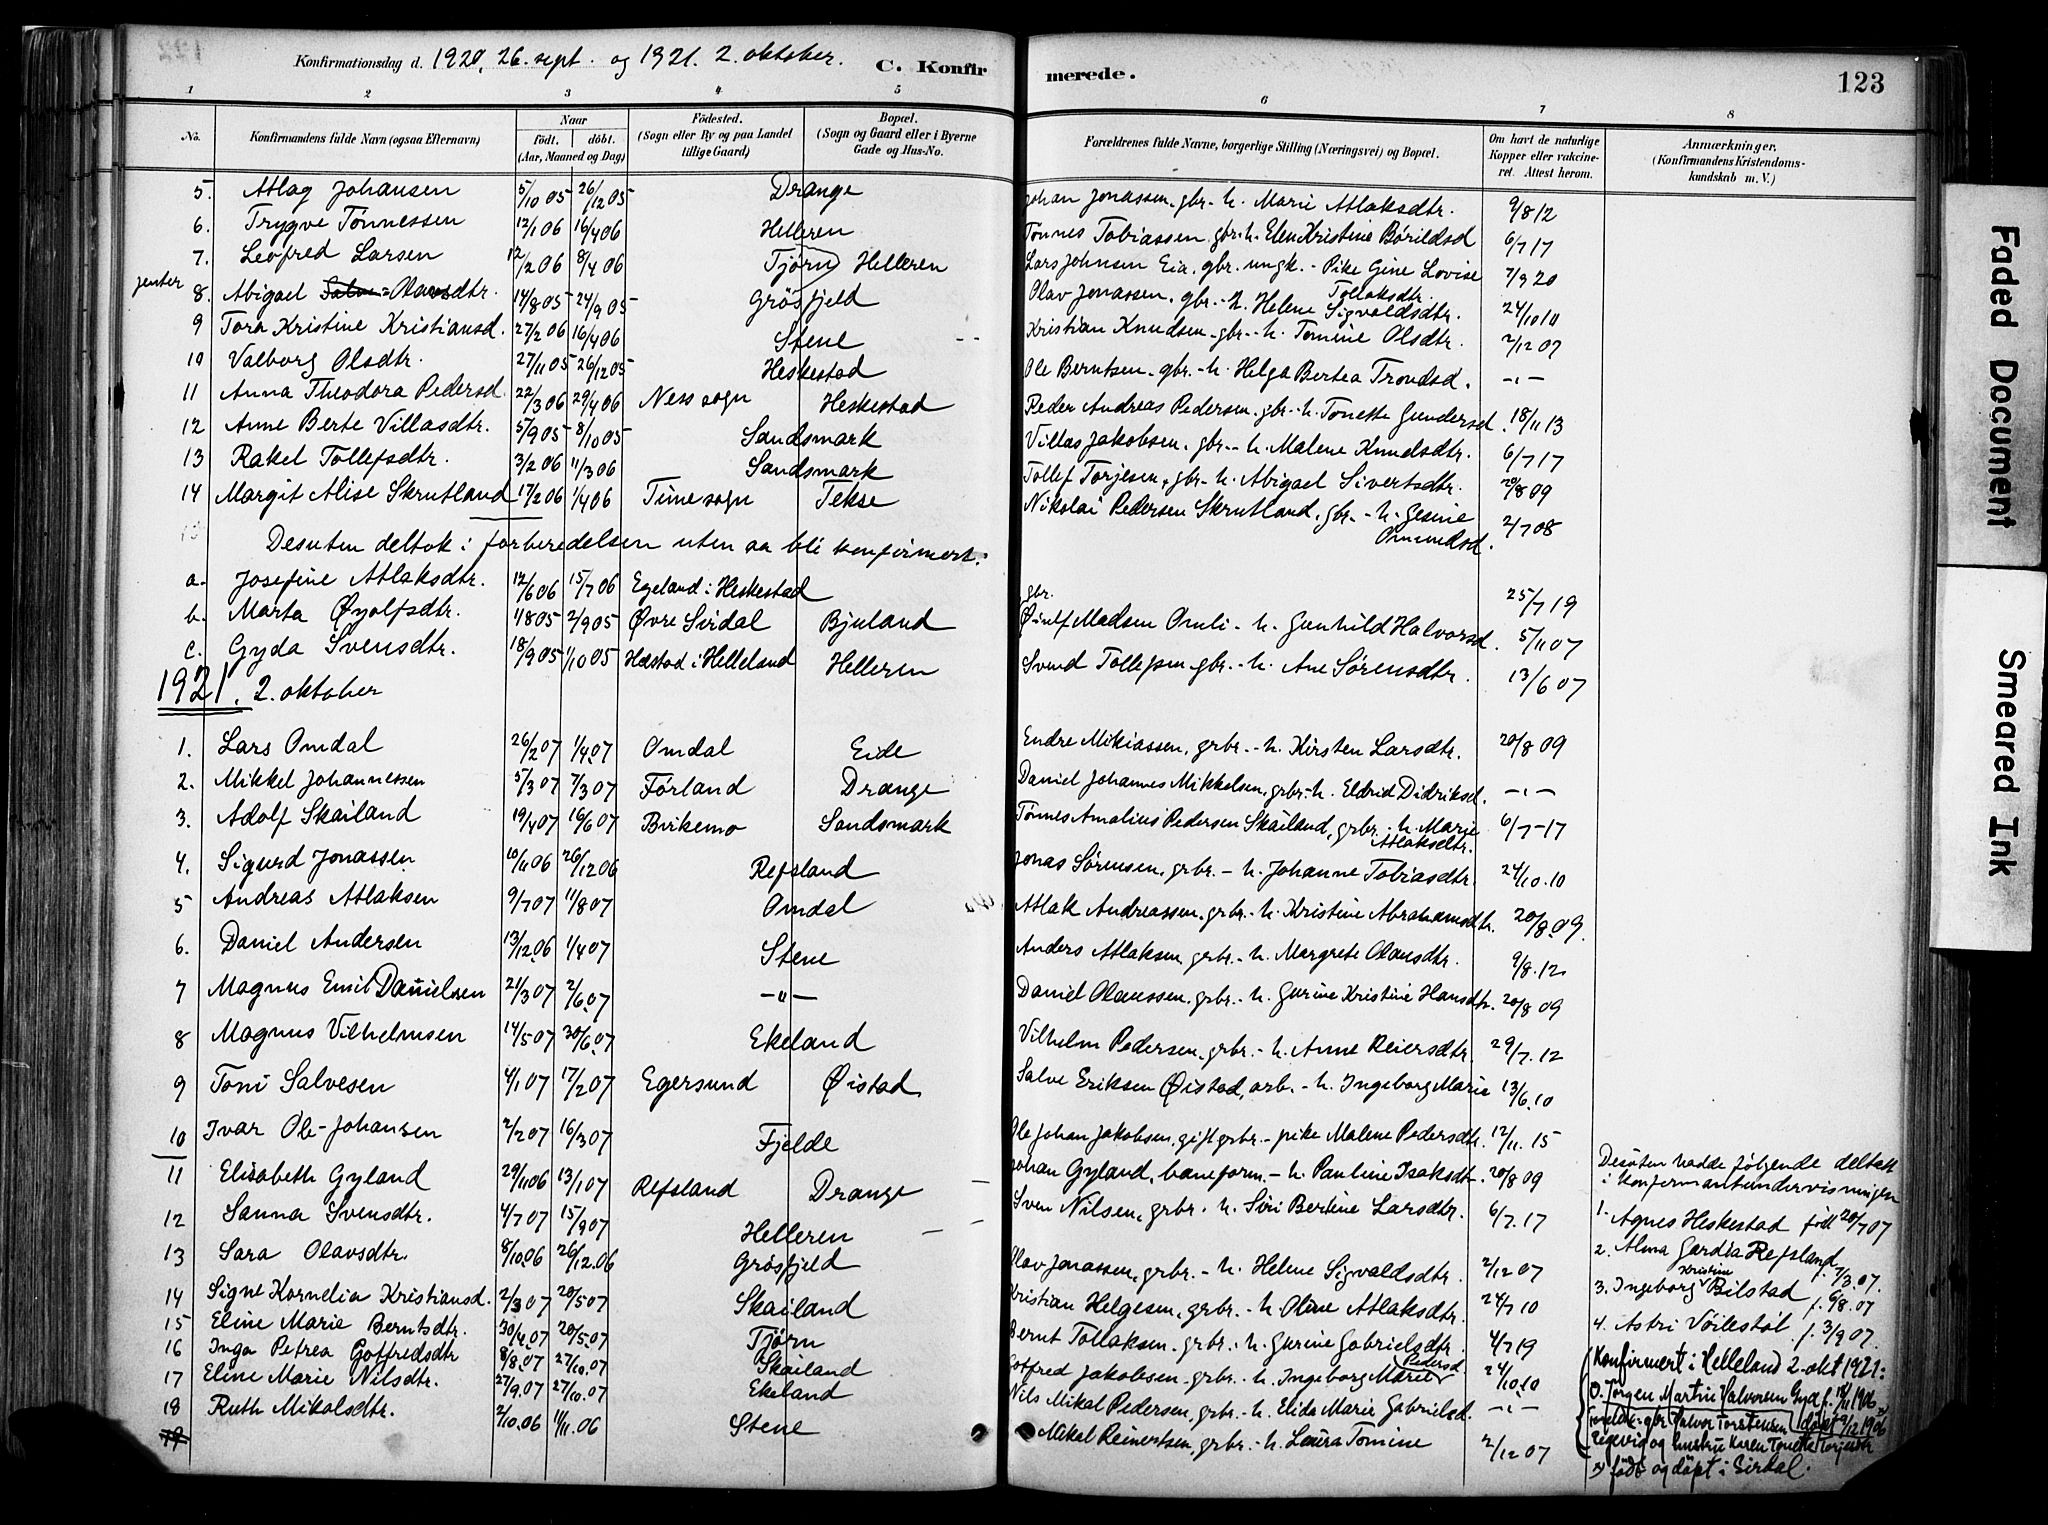 Konfirmationsdag d. 1920, 26. sept. og 1921. 2. oktober.
C. Konfirmerede.
123
1 2 3 4 5 6 7 8
No.
Konfirmandens fulde Navn (ogsaa Efternavn)
Naar født. døbt. (Aar, Maaned og Dag)
Fødested. (Sogn eller By og paa Landet tillige Gaard)
Bopæl. (Sogn og Gaard eller i Byerne Gade og Hus-No.
Forældrenes fulde Navne, borgerlige Stilling (Næringsvei) og Bopæl.
Om havt de naturlige Kopper eller vakcineret. Attest herom.
Anmærkninger. (Konfirmandens Kristendomskundskab m. V.)
5. Atlag Johansen 5/10 05 26/12 05 Drange Johan Jonassen. gbr. - h. Marie Atlaksdtr. 9/8 12
6. Trygve Tønnessen 12/1 06 16/4 06 Helleren Tønnes Tobiassen, gbr. h. Elen Kristine Børildsd 6/7 17
7. Leofred Larsen 12/2 06 8/4 06 Tjørn Helleren Lars Johnsen Eia, gbr. ungk. - Pike Gine Lovise Tollaksdtr. 7/9 20
jenter
8. Abigael Olavsdtr. 14/8 05 24/9 05 Grøsfjeld Olav Jonassen, gbr. - h. Helene Sigvaldsdtr. 24/10 10
9 Tora Kristine Kristiansd. 27/2 06 16/4 06 Stene Kristian Knudsen - gbr. - h. Tomine Olsdtr. 2/12 07
10 Valborg Olsdtr. 27/11 05 26/12 05 Heskestad Ole Berntsen - gbr. - h. Helga Bertea Trondsd. -"-
11 Anna Theodora Pedersd. 22/3 06 29/4 06 Ness sogn Heskestad Peder Andreas Pedersen, gbr. - h. Tonette Gundersd. 18/11 13
12 Anne Berte Villasdtr. 5/9 05 8/10 05 Sandsmark Villas Jakobsen, gbr. - h. Malene Knudsdtr. 6/7 17
13 Rakel Tollefsdtr. 3/2 06 11/3 06 Sandsmark Tollef Torjesen, gbr. - h. Abigael Sivertsdtr. 20/8 09
14 Margit Alise Skrutland 17/2 06 1/4 06 Time sogn Tekse Nikolai Pedersen Skrutland, gbr. - h. Gesine Ommundsd. 2/7 08
Desuten deltok i forberedelsen uten aa bli konfirmert:
a. Josefine Atlaksdtr. 12/6 06 15/7 06 Egeland i Heskestad gbr. 25/7 19
b. Marta Øyolfsdtr. 1/8 05 2/9 05 Øvre Sirdal Bjuland Øiulf Madsen Omli - h. Gunhild Halvorsd. 5/11 07
c. Gyda Svensdtr. 18/9 05 1/10 05 Hæstad i Helleland Helleren Svend Tollefsen gbr. - h. Ane Sørensdtr. 13/6 07
1921. 2. oktober
1. Lars Omdal 26/2 07 1/4 07 Omdal Eide Endre Mikiassen, grbr. - h. Kirsten Larsdtr. 20/8 09
2. Mikkel Johannessen 5/3 07 7/3 07 Førland Drange Daniel Johannes Mikkelsen, grbr. - h. Eldrid Didriksd. -"-
3. Adolf Skailand 19/4 07 16/6 07 Birkemo Sandsmark Tønnes Amalius Pedersen Skailand, grbr. - h. Marie Atlaksdtr. 6/7-17
4. Sigurd Jonassen 10/11 06 26/12 06 Refsland Jonas Sørensen, grbr. - h. Johanne Tobiasdtr. 24/10.10
5 Andreas Atlaksen 9/7 07 11/8 07 Omdal Atlak Andreassen, grbr. - h. Kristine Abrahamsdtr. 20/8.09.
6. Daniel Andersen 13/12.06 1/4 07 Stene Anders Atlaksen, grbr. - h. Margrete Olausdtr. 9/8.12
7 Magnus Emil Danielsen 21/3 07 2/6.07 -"- Daniel Olaussen, grbr. - h. Gurine Kristine Hansdtr. 20/8 09
8 Magnus Vilhelmsen 14/5 07 30/6.07 Ekeland Vilhelm Pedersen, grbr. - h. Anne Reiersdtr. 29/7.12
9 Toni Salvesen 4/1 07 17/2 07 Egersund Øistad Salve Eriksen Øistad, arb. - h. Ingeborg Marie 13/6.10
10 Ivar Ole-Johansen 2/2 07 16/3 07 Fjelde Ole Johan Jakobsen, gift grbr. - pike Malene Pedersdtr. 12/11.15
11 Elisabeth Gyland 29/11 06 13/1 07 Refsland Drange Johan Gyland, baneform. - h. Pauline Isaksdtr. 20/8 09
12 Sanna Svensdtr. 4/7 07 15/9 07 Helleren Sven Nilsen, grbr. h. Siri Bertine Larsdtr. 6/7.17
13 Sara Olavsdtr. 8/10.06 26/12.06 Grøsfjeld Olav Jonassen, grbr. - h. Helene Sigvaldsdtr. 2/12 07
14 Signe Kornelia Kristiansd. 2/3 07 20/5 07 Skailand Kristian Helgesen, grbr. - h. Oline Atlaksdtr. 24/7 10
15 Eline Marie Berntsdtr. 30/4.07 20/5.07 Tjørn Bernt Tollaksen, grbr. h. Gurine Gabrielsdtr. 4/7 19
16 Inga Petrea Gotfredsdtr 8/8.07 27/10.07 Skailand Gotfred Jakobsen - grbr. - h. Ingeborg Marie Pedersd. 24/10.10
17 Eline Marie Nilsdtr. 27/9.07 27/10.07 Ekeland Nils Mikal Pedersen, grbr. - h. Elida Marie Gabrielsd. -"-
18 Ruth Mikalsdtr. 2/10.06 1/11.06 Stene Mikal Reinertsen, grbr. - h. Laura Tomine 2/12 07
19
Desuten hadde følgende deltatt
i konfirmantundervisningen
1. Agnes Heskestad født 20/7 07
2. Alma Gardia Refsland f. 7/3.07.
3. Ingeborg Kristin Bilstad f. 6/8.07
4. Astri Vøilestøl f. 3/9 07.
Konfirmert i Helleland 2. okt 1921:
Jørgen Martin Halvorsen Gyd f. 18/11 1906
foreldre: gbr. Halvor Torstensen døpt 9/12 1906
og hustru Karen Tonette Torjesdtr
x) født og døpt i Sirdal.
Faded Document
Smeared Ink